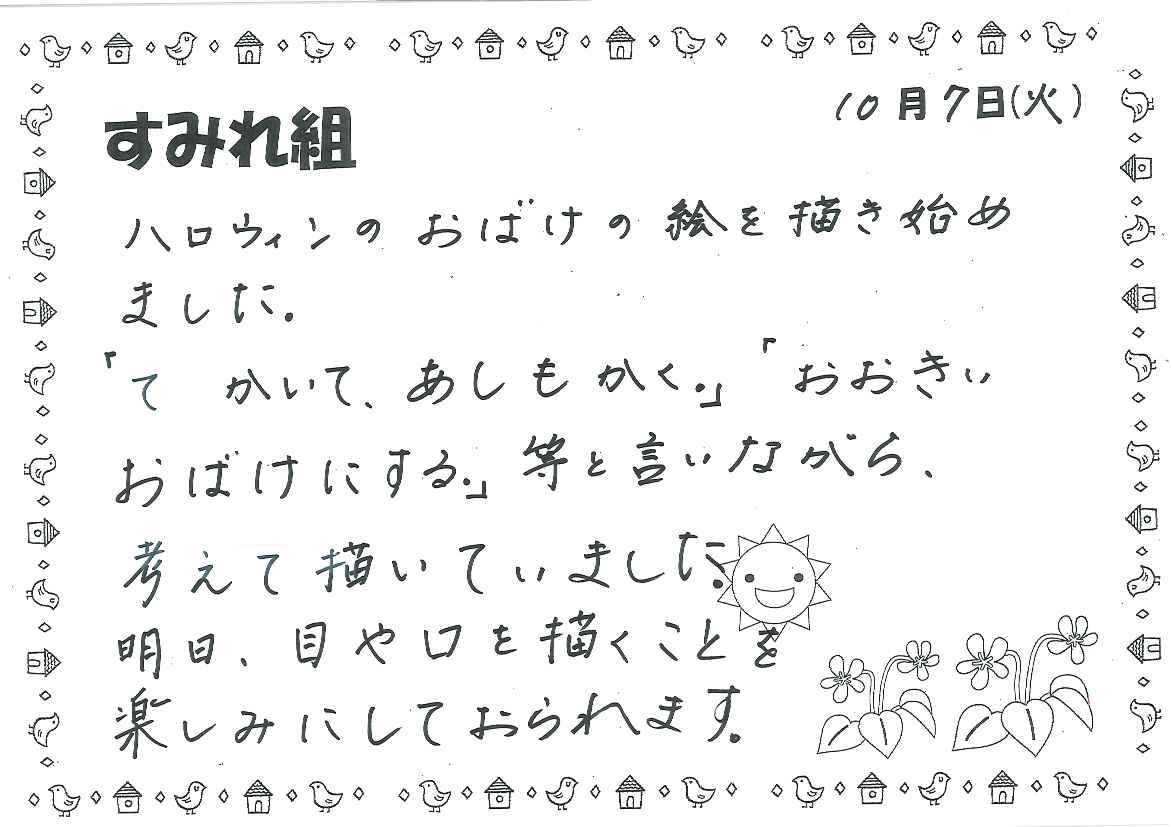 10月7日(火)
すみれ組
ハロウィンのおばけの絵を描き始め
ました。
「て かいて、あしもかく。」「おおきい
おばけにする。」等と言いながら、
考えて描いていました。
明日、目や口を描くことを
楽しみにしておられます。